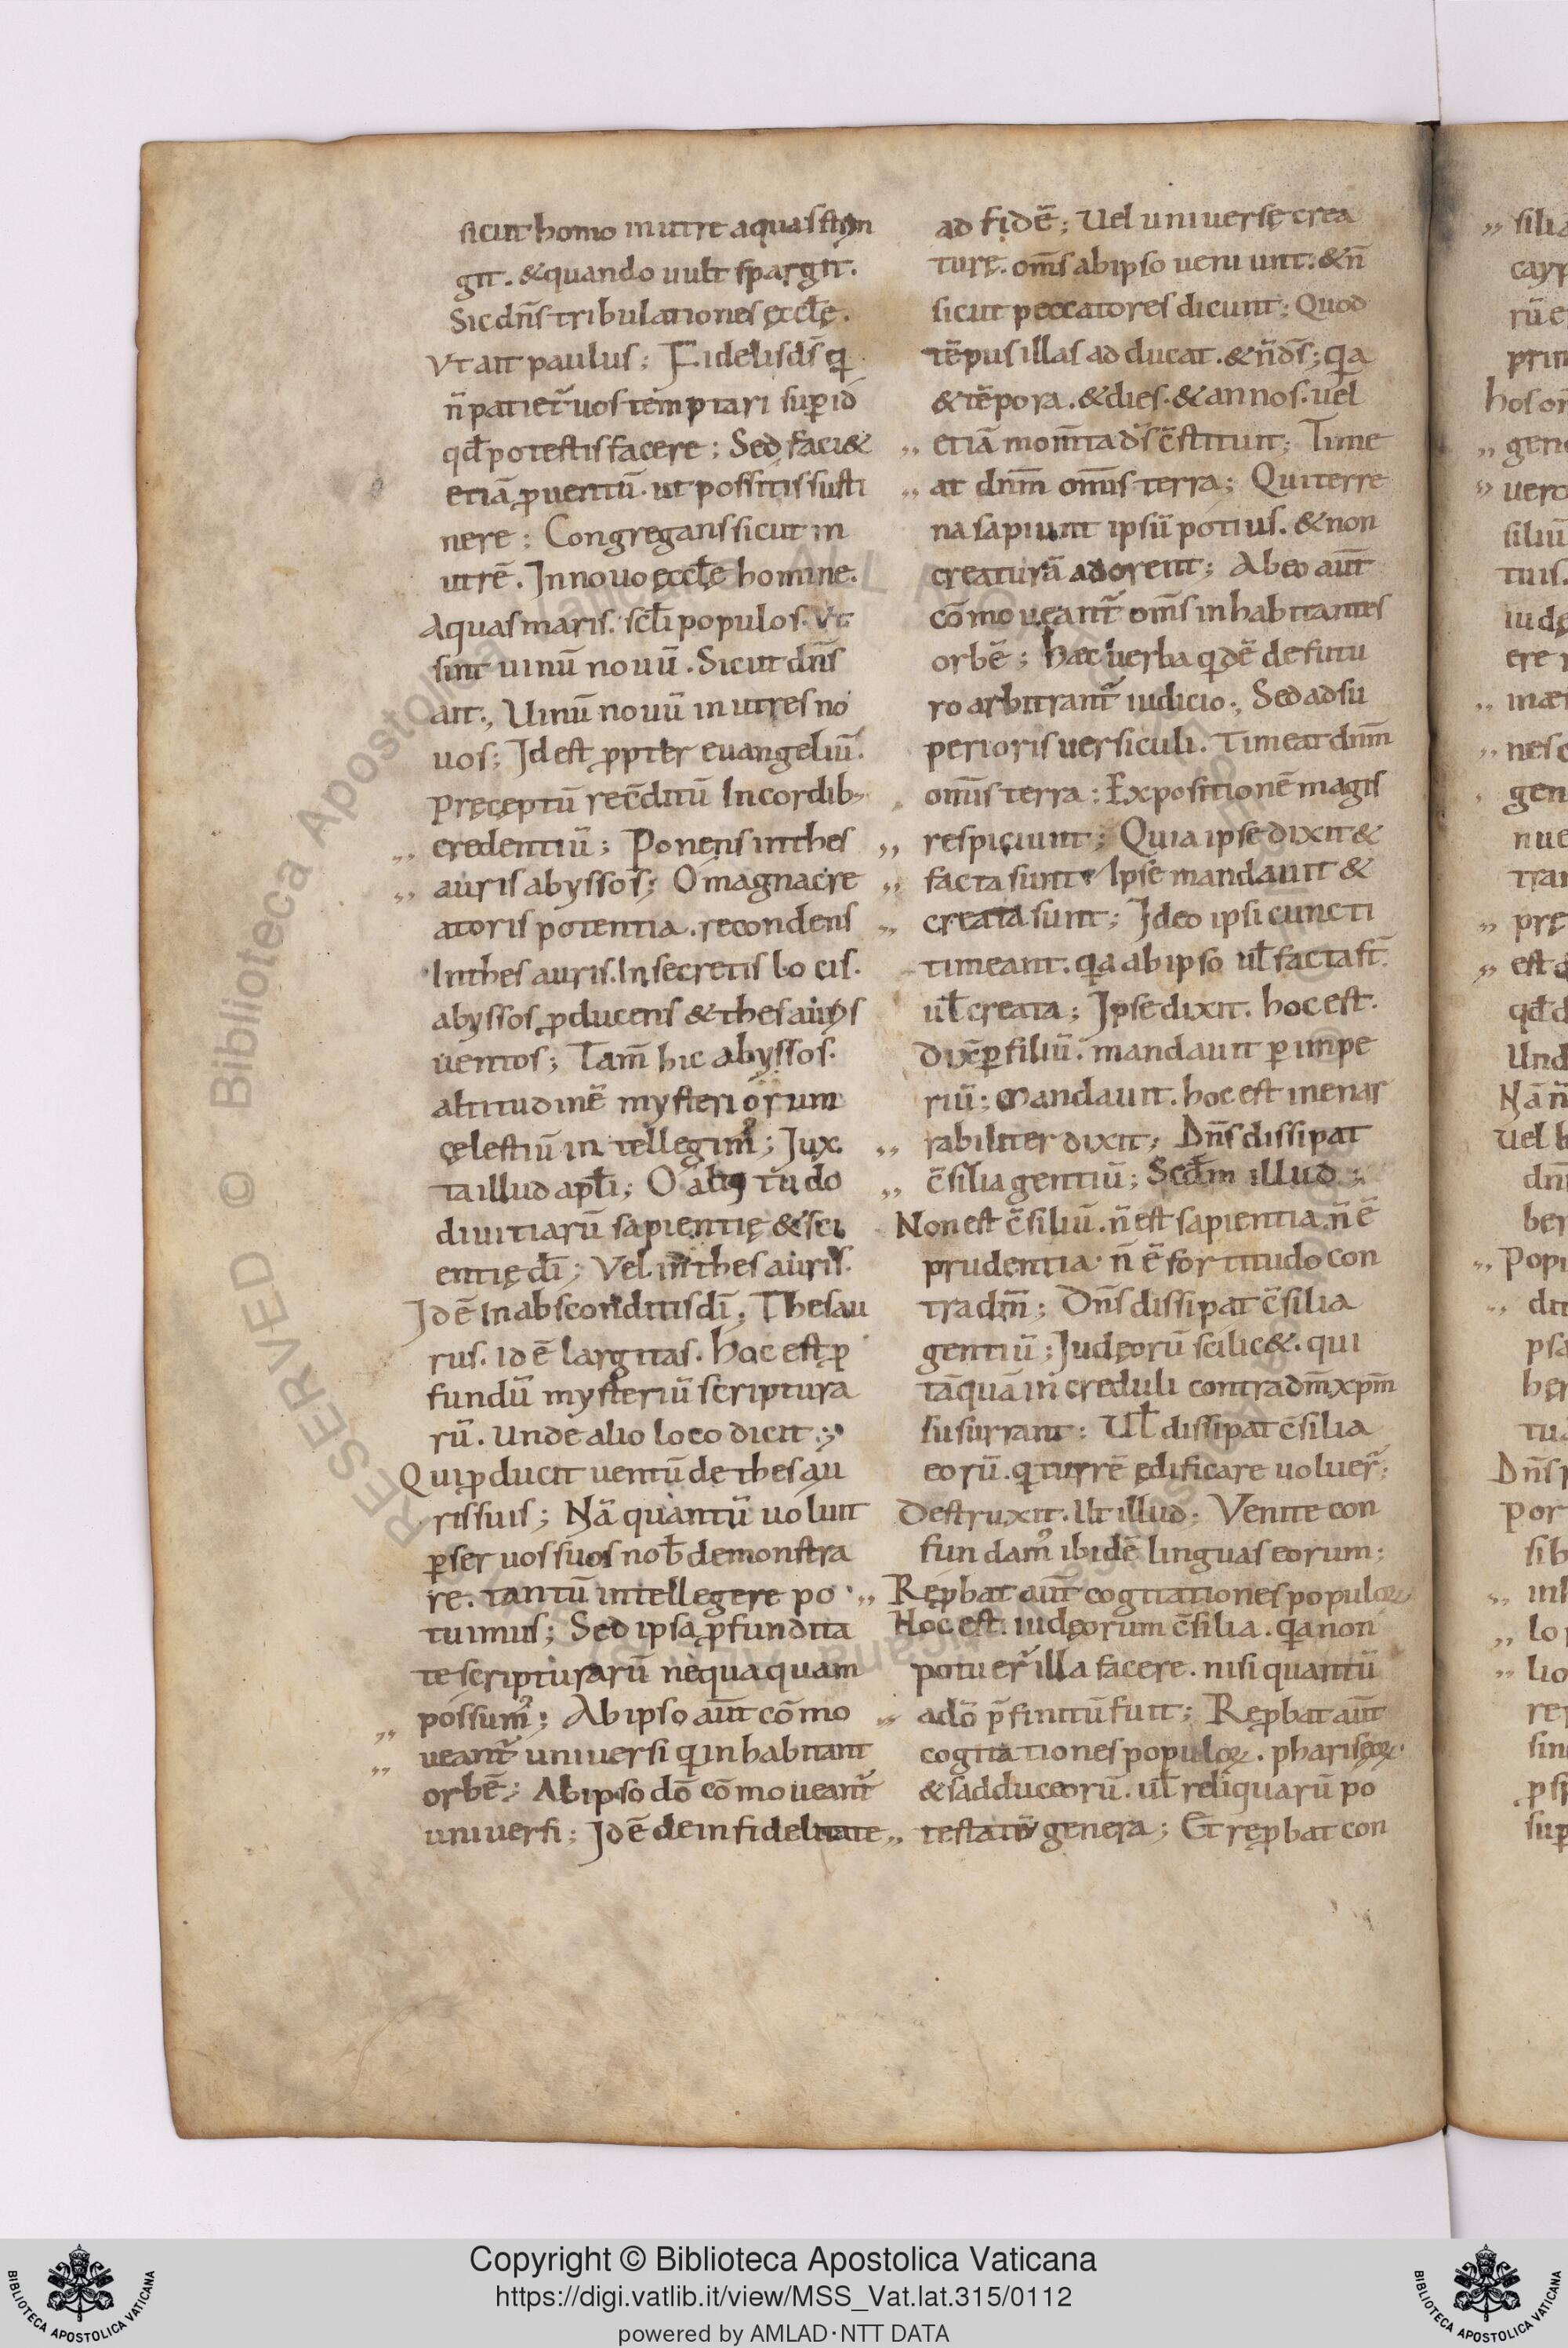 sicut homo in utre aquas stṛin
git. &quando uult spargit.
Sic dn̄s tribulationes ęccłę.
Vt ait paulus; Fidelis ds̄ q̄
n̄ patiet̄ uos temptari sup id
qđ potestis facere; Sed faci&
etiā ꝓuentū. ut possitis susti
nere; Congregans sicut in
utrē. In nouo ęccłe homine.
Aquas maris. scłi populos. vt
sint uinū nouū. Sicut dn̄s
ait., Uinū nouū in utres no
uos; Id est ꝓpter euangeliū.
Pręceptū recc̄ditū In cordib;
„ credentiū; Ponens in thes
„ auris abyssos; O magna cre
atoris potentia. recondens
In thesauris. In secretis locis.
abyssos ꝓducens & thesauros
uentos; Tam̄ hic abyssos.
altitudinē mysteriorum
cęlestiū intellegim᷒; Jux
ta illud apłi; O altitudo
diuitiarū sapientię & sci
entię dī; Vel in thesauris.
Id ē In absconditis dī; Thesau
rus. id ē largitas. hoc est ꝓ
fundū mysteriū scriptura
rū. Unde alio loco dicit;
Qui ꝓducit uentū de thesau
ris suis; Nā quantū uoluit
ꝑ seruos suos noƀ demonstra
re. tantū intellegere po
tuimus; Sed ipsa ꝓfundita
te scripturarū nequaquam
„ possum᷒; Ab ipso aut̄ cōmo
„ ueant̄ uniuersi q̄ inhabitant
orbē; Ab ipso dō cōmoueant̄
uniuersi; Id ē de infidelitate
ad fidē; Uel uniuersę crea
turę. om̄s ab ipso ueniunt. & n̄
sicut peccatores dicunt; Quod
tēpus illas adducat. & n̄ ds̄; q̄a
& tēpora. & dies. & annos. uel
„ etiā mom̄ta ds̄ c̄stituit; Time
„ at dnm̄ omīs terra; Qui terre
na sapiunt ipsū potius. & non
creaturā adorent; Ab eo aut̄
cōmoueant̄ om̄s inhabitantes
orbē; hæc uerba q̄dē de futu
ro arbitrant̄ iudicio., Sed ad su
perioris uersiculi. Timeat dnm̄
omīs terra; Expositionē magis
„ respiciunt; Quia ipse dixit &
„ facta sunt; Ipse mandauit &
„ creata sunt; Ideo ipsi cuncti
timeant. q̄a ab ipso uł facta st̄.
uł creata; Ipse dixit. hoc est.
dix̄ ꝑ filiū. mandauit ꝑ impe
riū; Mandauit. hoc est inenar
„ rabiliter dixit; Dn̄s dissipat
„ c̄silia gentiū; Scđm illud;
Non est c̄siliū. n̄ est sapientia n̄ ē
prudentia. n̄ ē fortitudo con
tra dm̄; Dn̄s dissipat c̄silia
gentiū; Iudęorū scilic&. qui
tāquā increduli contra dm̄ xpm̄
susurrant; Uł dissipat c̄silia
eorū. q̄ turrē ędificare uoluer̄;
Destruxit. Ut illud; Venite con
fundam᷒ ibidē linguas eorum;
„ Reꝓbat aut̄ cogitationes populoꝝ
Hoc est. iudęorum c̄silia. q̄a non
potuer̄ illa facere. nisi quantū
„ a dō p̄finitū fuit; Reꝓbat aut̄
cogitationes populoꝝ. pharisęoꝝ.
& sadduceorū. uł reliquarū po
„ testatū genera; Et reꝓbat con
Copyright © Biblioteca Apostolica Vaticana
https://digi.vatlib.it/view/MSS_Vat.lat.315/0112
powered by AMLAD·NTT DATA